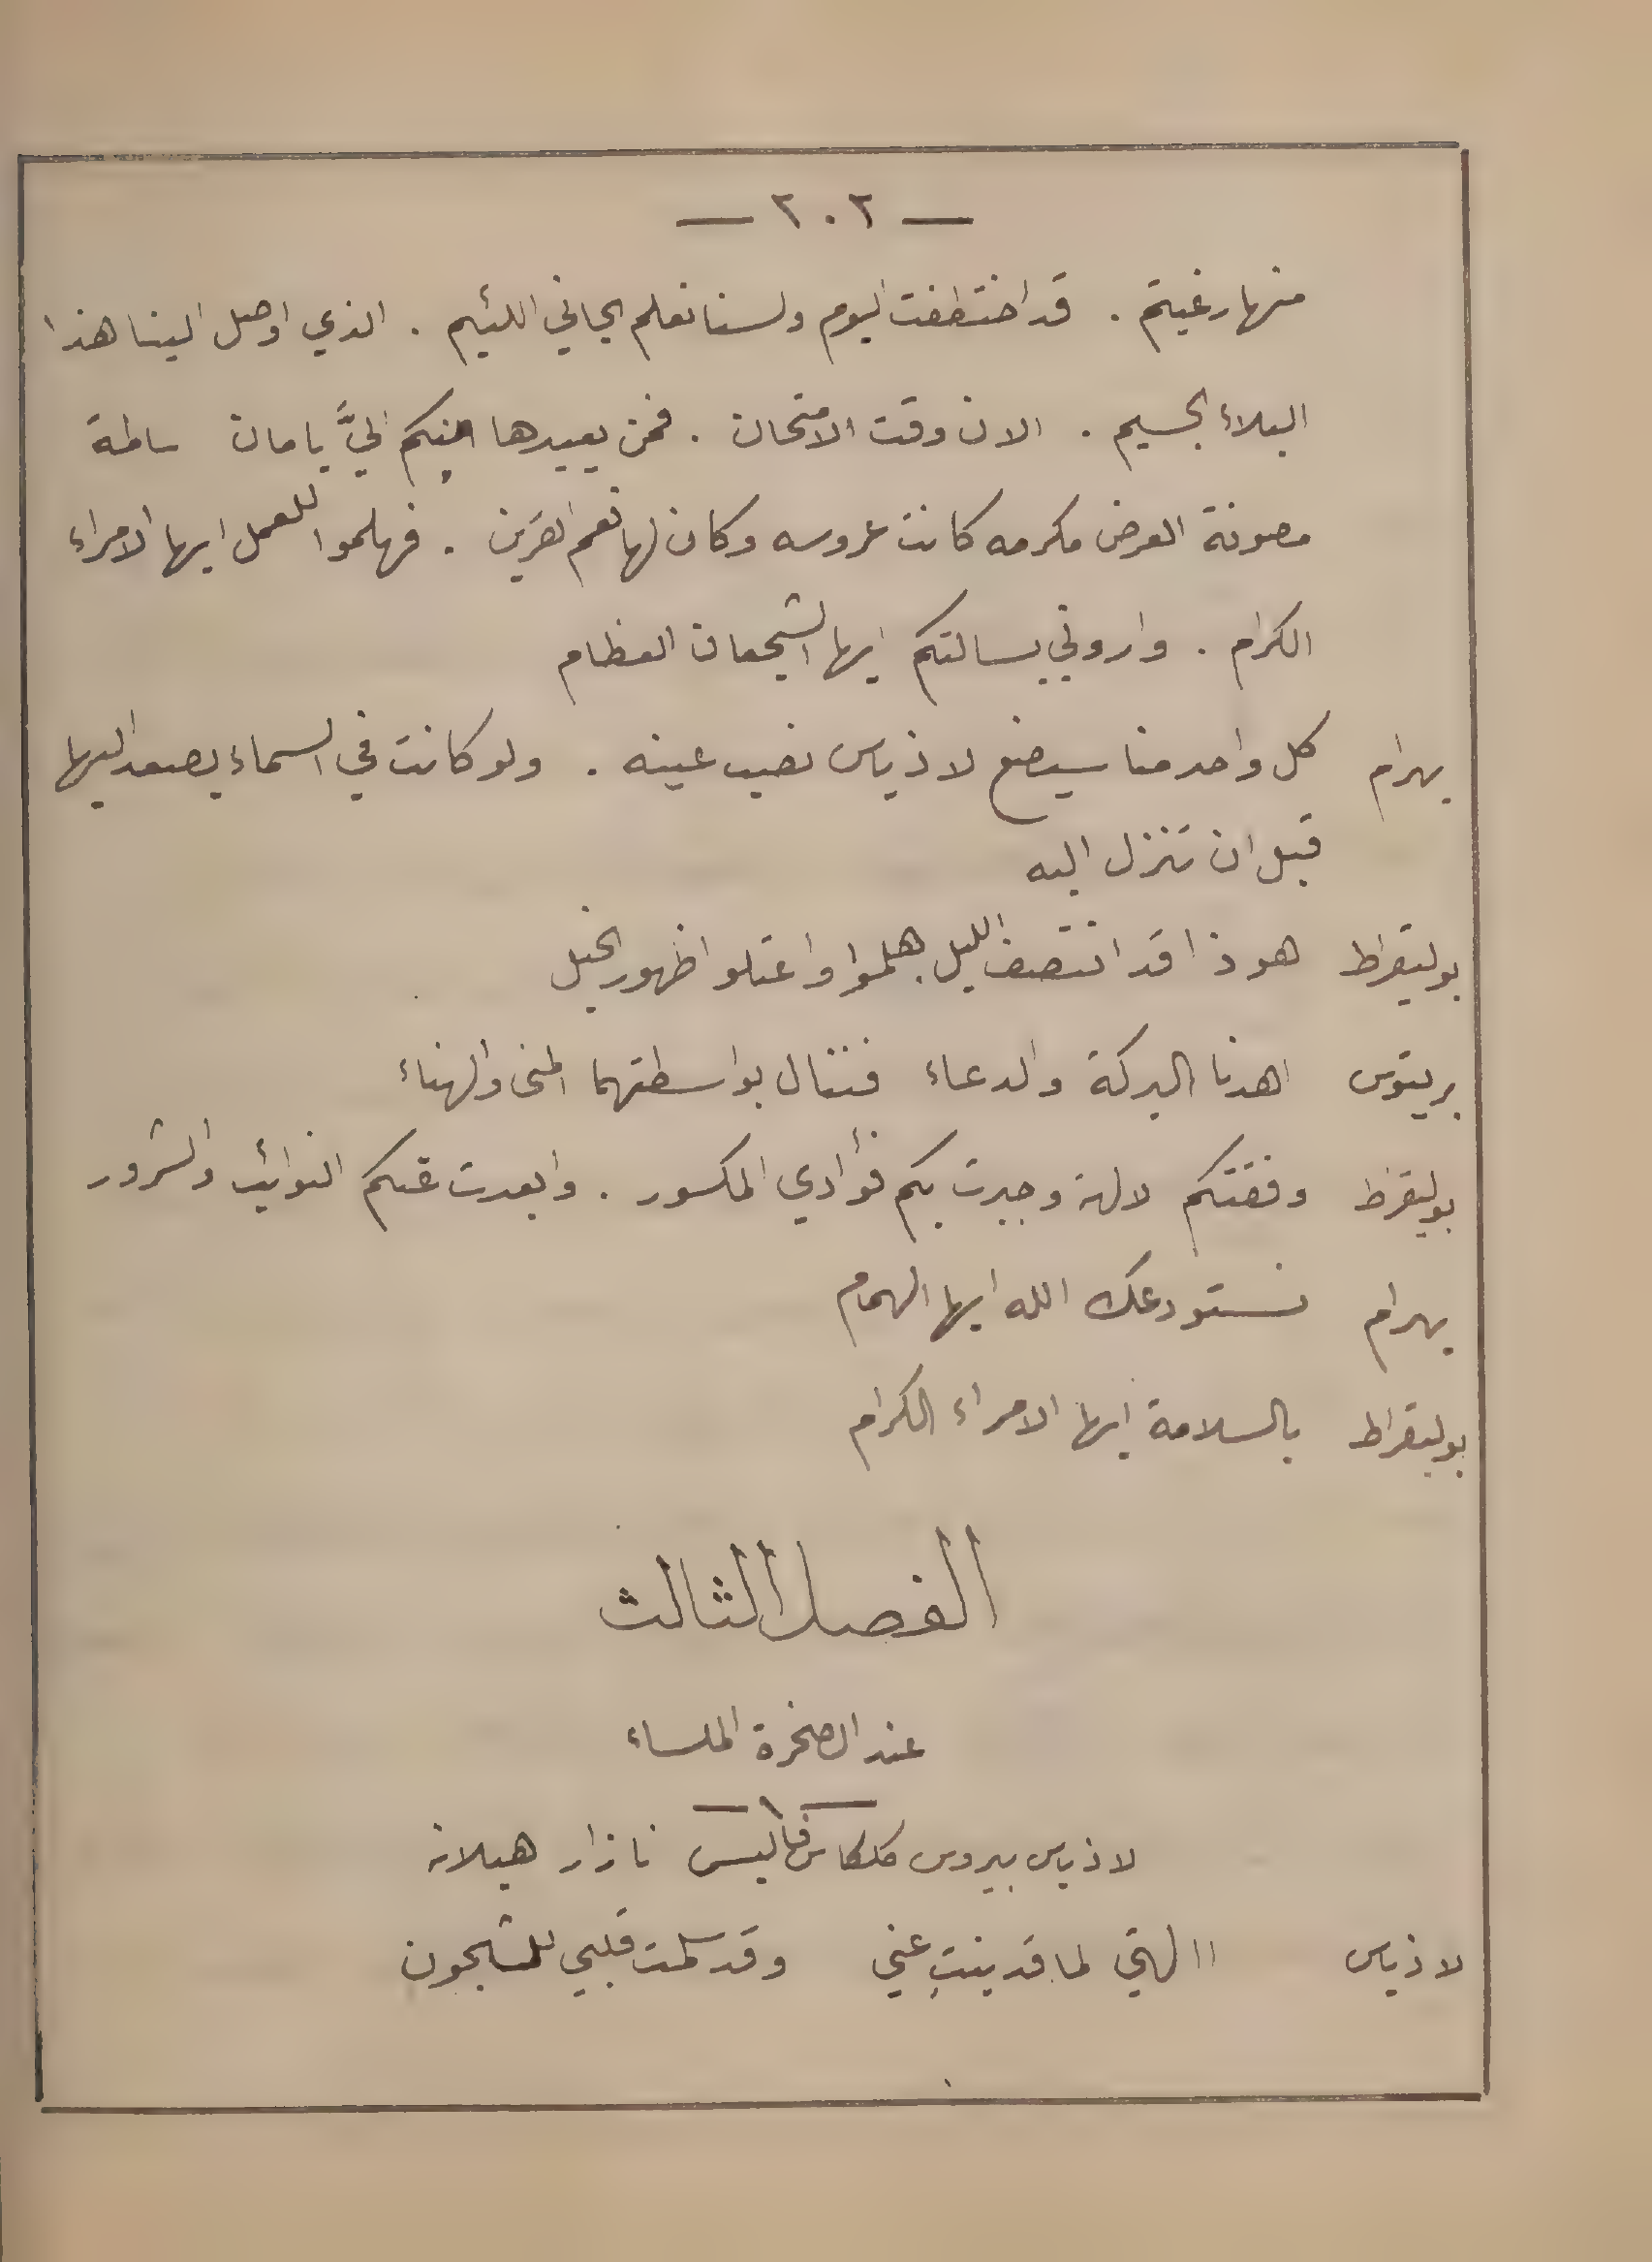 — ٢٠٢ —
منها رغبتم . قد اختطفت اليوم ولسنا نعلم الجاني اللئيم . الذي اوصل الينا هذا
البلاء الجسيم . الان وقت الامتحان . فمن يعيدها منكم اليَّ بامان سالمة
مصونة العرض مكرمه كانت عروسه وكان لها نعم القرين . فهلموا للعمل ايها الامراء
الكرام . واروني بسالتكم ايها الشجعان العظام
بهرام كل واحد منا سيضع لاذياس نصب عينه . ولو كانت في السماء يصعد اليها
قبل ان تنزل اليه
بوليقراط هوذا قد انتصف الليل هلموا واعتلوا ظهور الخيل
بريتوس اهدنا البركة والدعاء فننال بواسطتهما المنى والهناء
بوليقراط وفقتكم لالهة وجبرت بكم فؤادي المكسور . وابعدت عنكم النوائب والشرور
بهرام نستودعك الله ايها الهمام
بوليقراط بالسلامة ايها الامراء الكرام
الفصل الثالث
عند الصخرة الملساء
— ١ —
لاذياس بيروس ملكاس فاليس نازار هيلانه
لاذياس االهتي لما قد بنتِ عني وقد سلمت قلبي للشجون